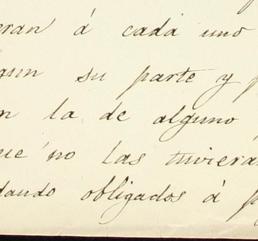 eran á cada uno
gun su parte y p
n la de alguno
ue no las tuviera
dando obligados á p